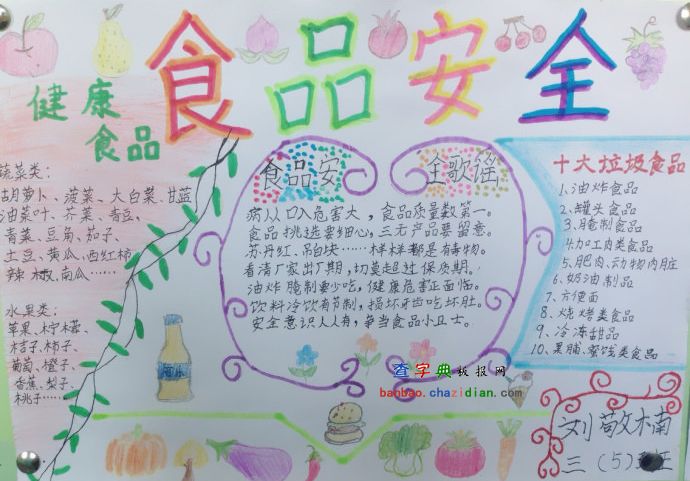 食品安全
健康
食品
蔬菜类:
胡萝卜、菠菜、大白菜、甘蓝
油菜叶、芥菜、青豆、
青菜、豆角、茄子、
土豆、黄瓜、西红柿
辣椒、南瓜……
水果类:
苹果、柠檬、
桔子、柿子、
葡萄、橙子、
香蕉、梨子、
桃子……
食品安全歌谣
病从口入危害大,食品质量数第一。
食品挑选要细心,三无产品要留意。
苏丹红、吊白块……样样都是有毒物。
看清厂家出厂期,切莫超过保质期。
油炸腌制要少吃,健康危害正面临。
饮料冷饮有节制,损坏牙齿吃坏肚。
安全意识人人有,争当食品小卫士。
十大垃圾食品
1、油炸食品
2、罐头食品
3、腌制食品
4、加工肉类食品
5、肥肉、动物内脏
6、奶油制品
7、方便面
8、烧烤类食品
9、冷冻甜品
10、果脯、蜜饯类食品
查字典板报网
banbao.chazidian.com
刘敬楠
三(5)班